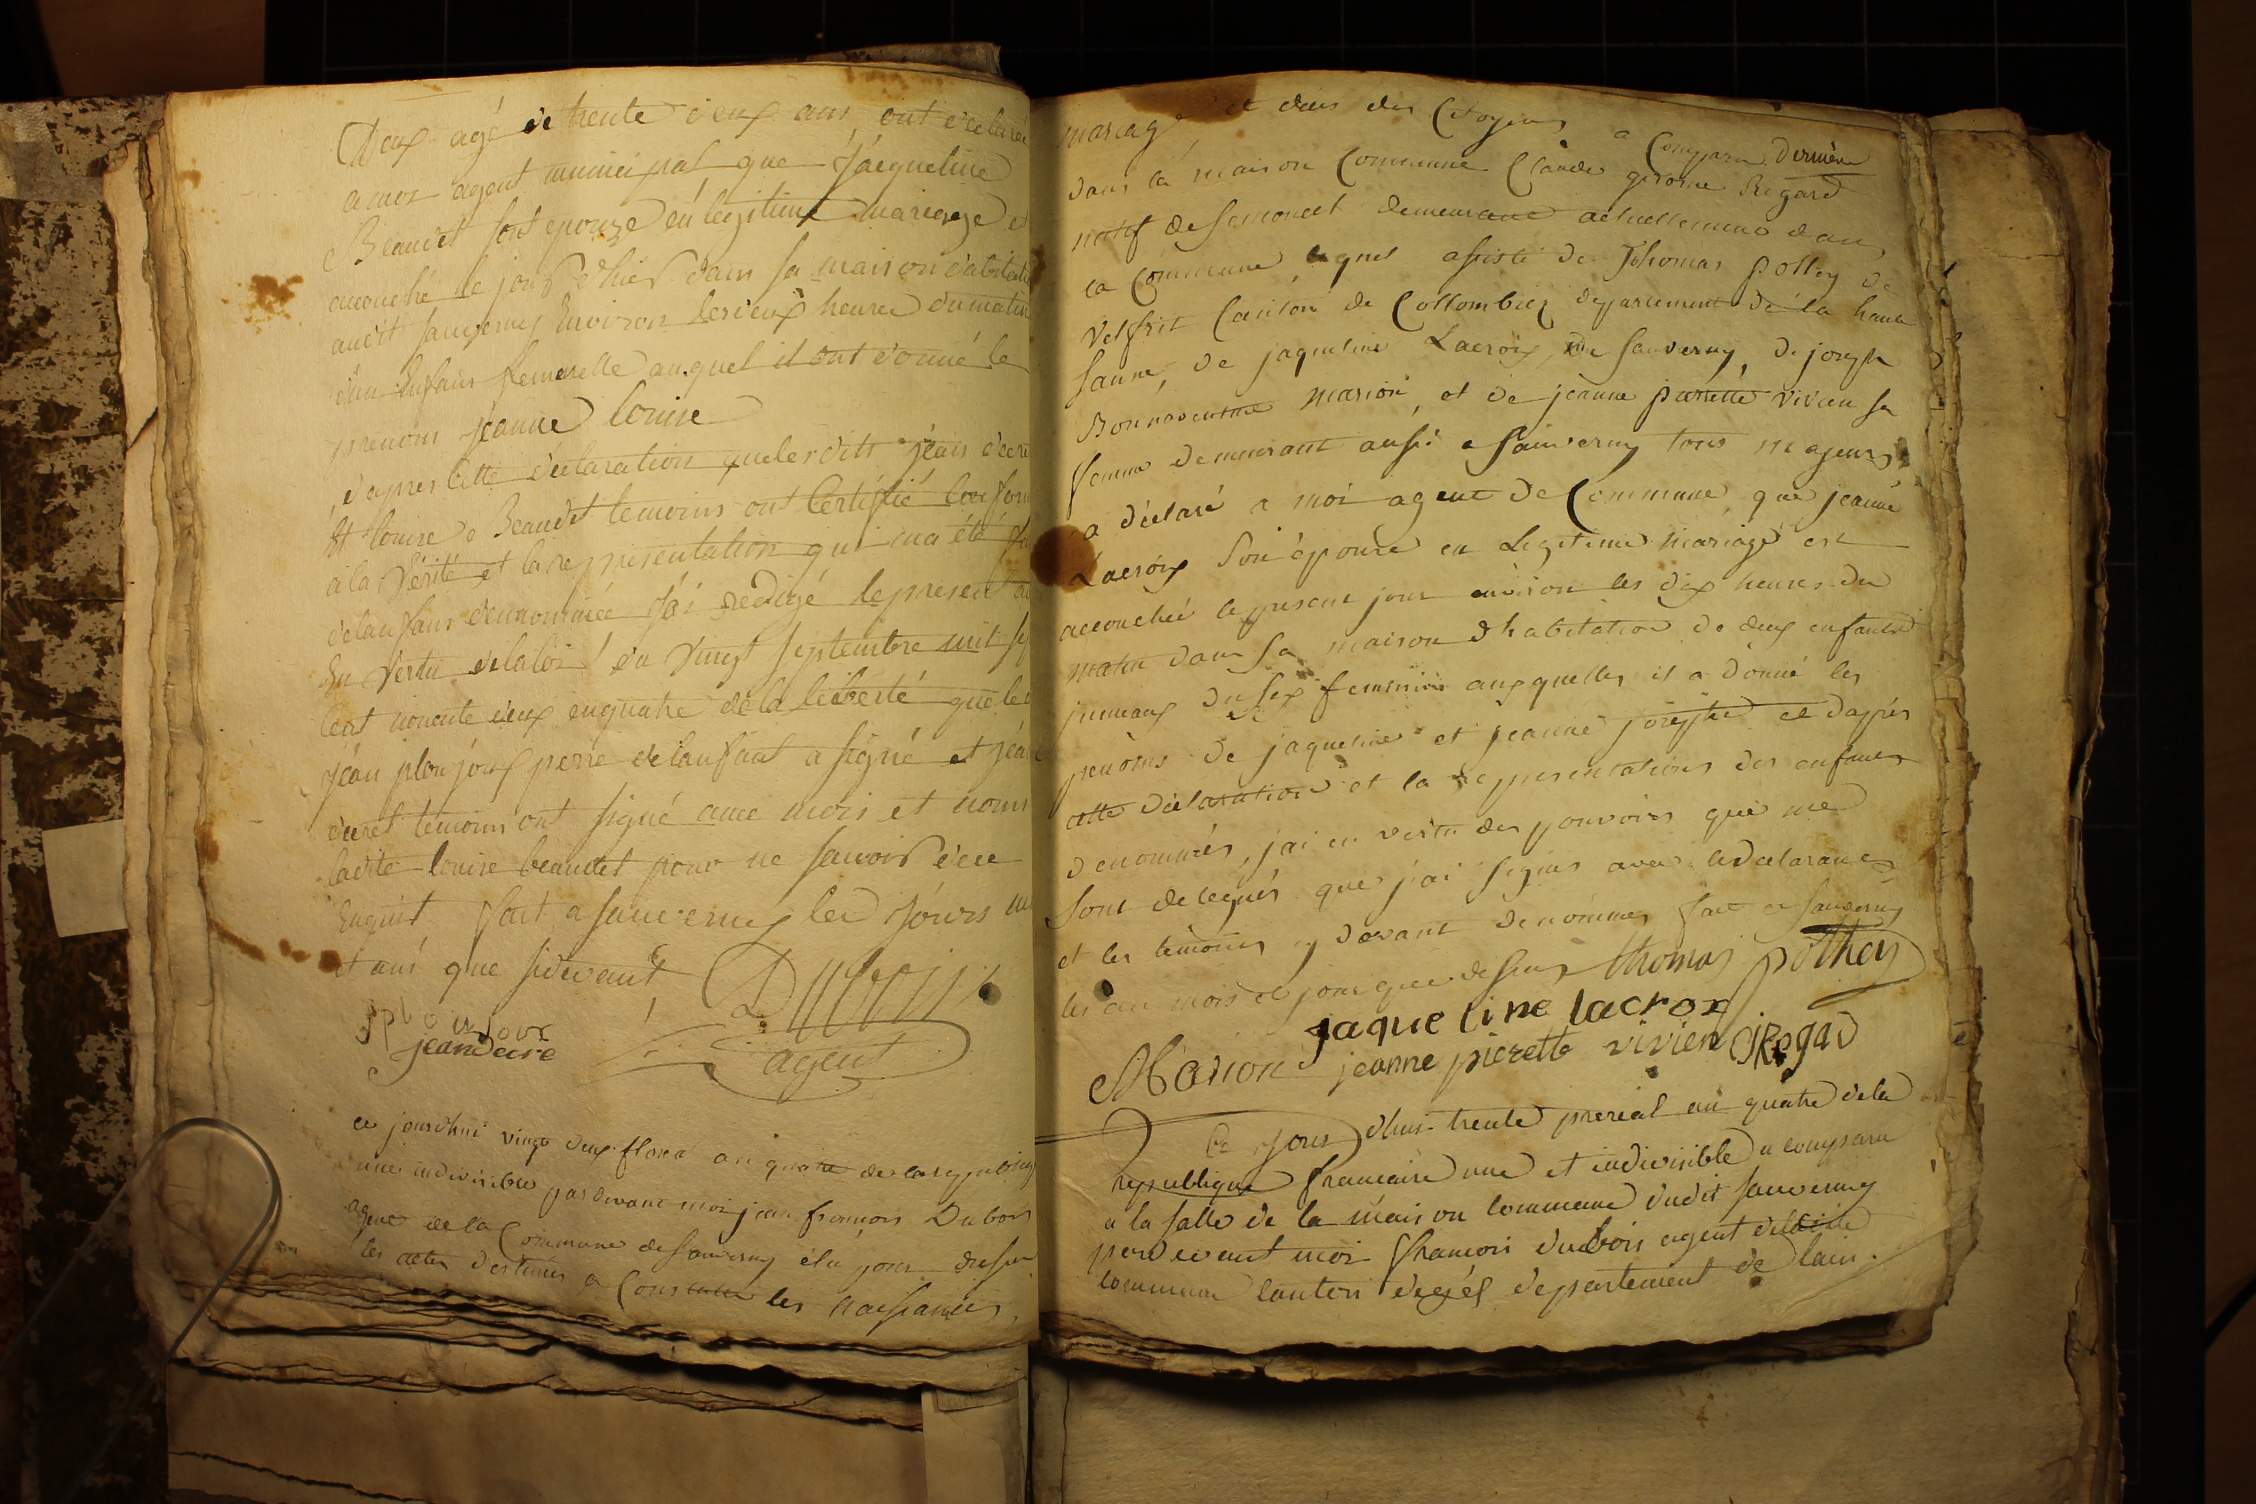 Deux agé de trente deux ans, ont declaré
a moi agent municipal que Jacqueline
Beaudet sont epouze en legitime mariage et
accouché le jour d'hier dans sa maison d'abitation
audit sauverny Environ les deux heures du matin
d'un Enfans femerelle auquel il ont donné le
prenom jeanne louise
d'apres cette declaration que lesdits jean decre
et louise Beaudet temoins ont Certifié conforme
a la Vérité et la representation qui ma été
de lanfans denommée J'ai redigé le present
En Vertu de la loi du Vingt septembre mil sept
cent nonente deux enquatre de la leiberté que le
jean plonjoux perre de lanfant a signé et jean
decret temoins ont signé avec mois et nom
ladite louise beaudet pour ne savoir
Enquist fait a sauverny les jours
et ans que sidevant
Duboiix
jplonjoux
jean decré
agent
ce jourdhui vingt deux floreal an quatre de la republique
une indivisible par devant moi jean francois Dubois
agent de la Commune de sauverny élu pour dresser
les actes destinés a Constater les naissances,
mariage et deces des Citoyens a Comparu
dans la maison Commune Claude gerome Regard
natif de semoncel demeurant actuellement dans
la Commune, lequel assisté de Thomas Pottey de
Velfrit Canton de Collombiez departement de la haute
saune, de jaqueline Lacroix, de sauverny, de joseph
Bonnaventure marion, et de jeanne pierrette vivien sa
femme demeurant aussi a sauverny tous majeurs
a déclaré a moi agent de Commune, que jeanne
Lacroix son épouse en Legitime mariage est
accouchée le present jour environ les dix heures du
matin dans sa maison d'habitation de deux enfants
jumeaux du sex feminin auxquelles il a donné les
prenoms de jaqueline et jeanne josephe et d'après
cette déclaration et la representation des enfants
denommés, j'ai en vertu des pouvoirs qui me
sont delegués que j'ai signés avec le declarant
et les temoins cy devant denommes fait a sauverny
les an mois et jour que dessus thomas pothey
jaqueline lacrox
Marion jeanne pierette vivien Regad
Ce Jour d'hui trente prereal an quatre de la
republique francaise une et indivisible a comparu
a la salle de la maison commune dudit sauverny
perdevant moi francois dubois agent de ladite
commune canton de gex departement de lain.